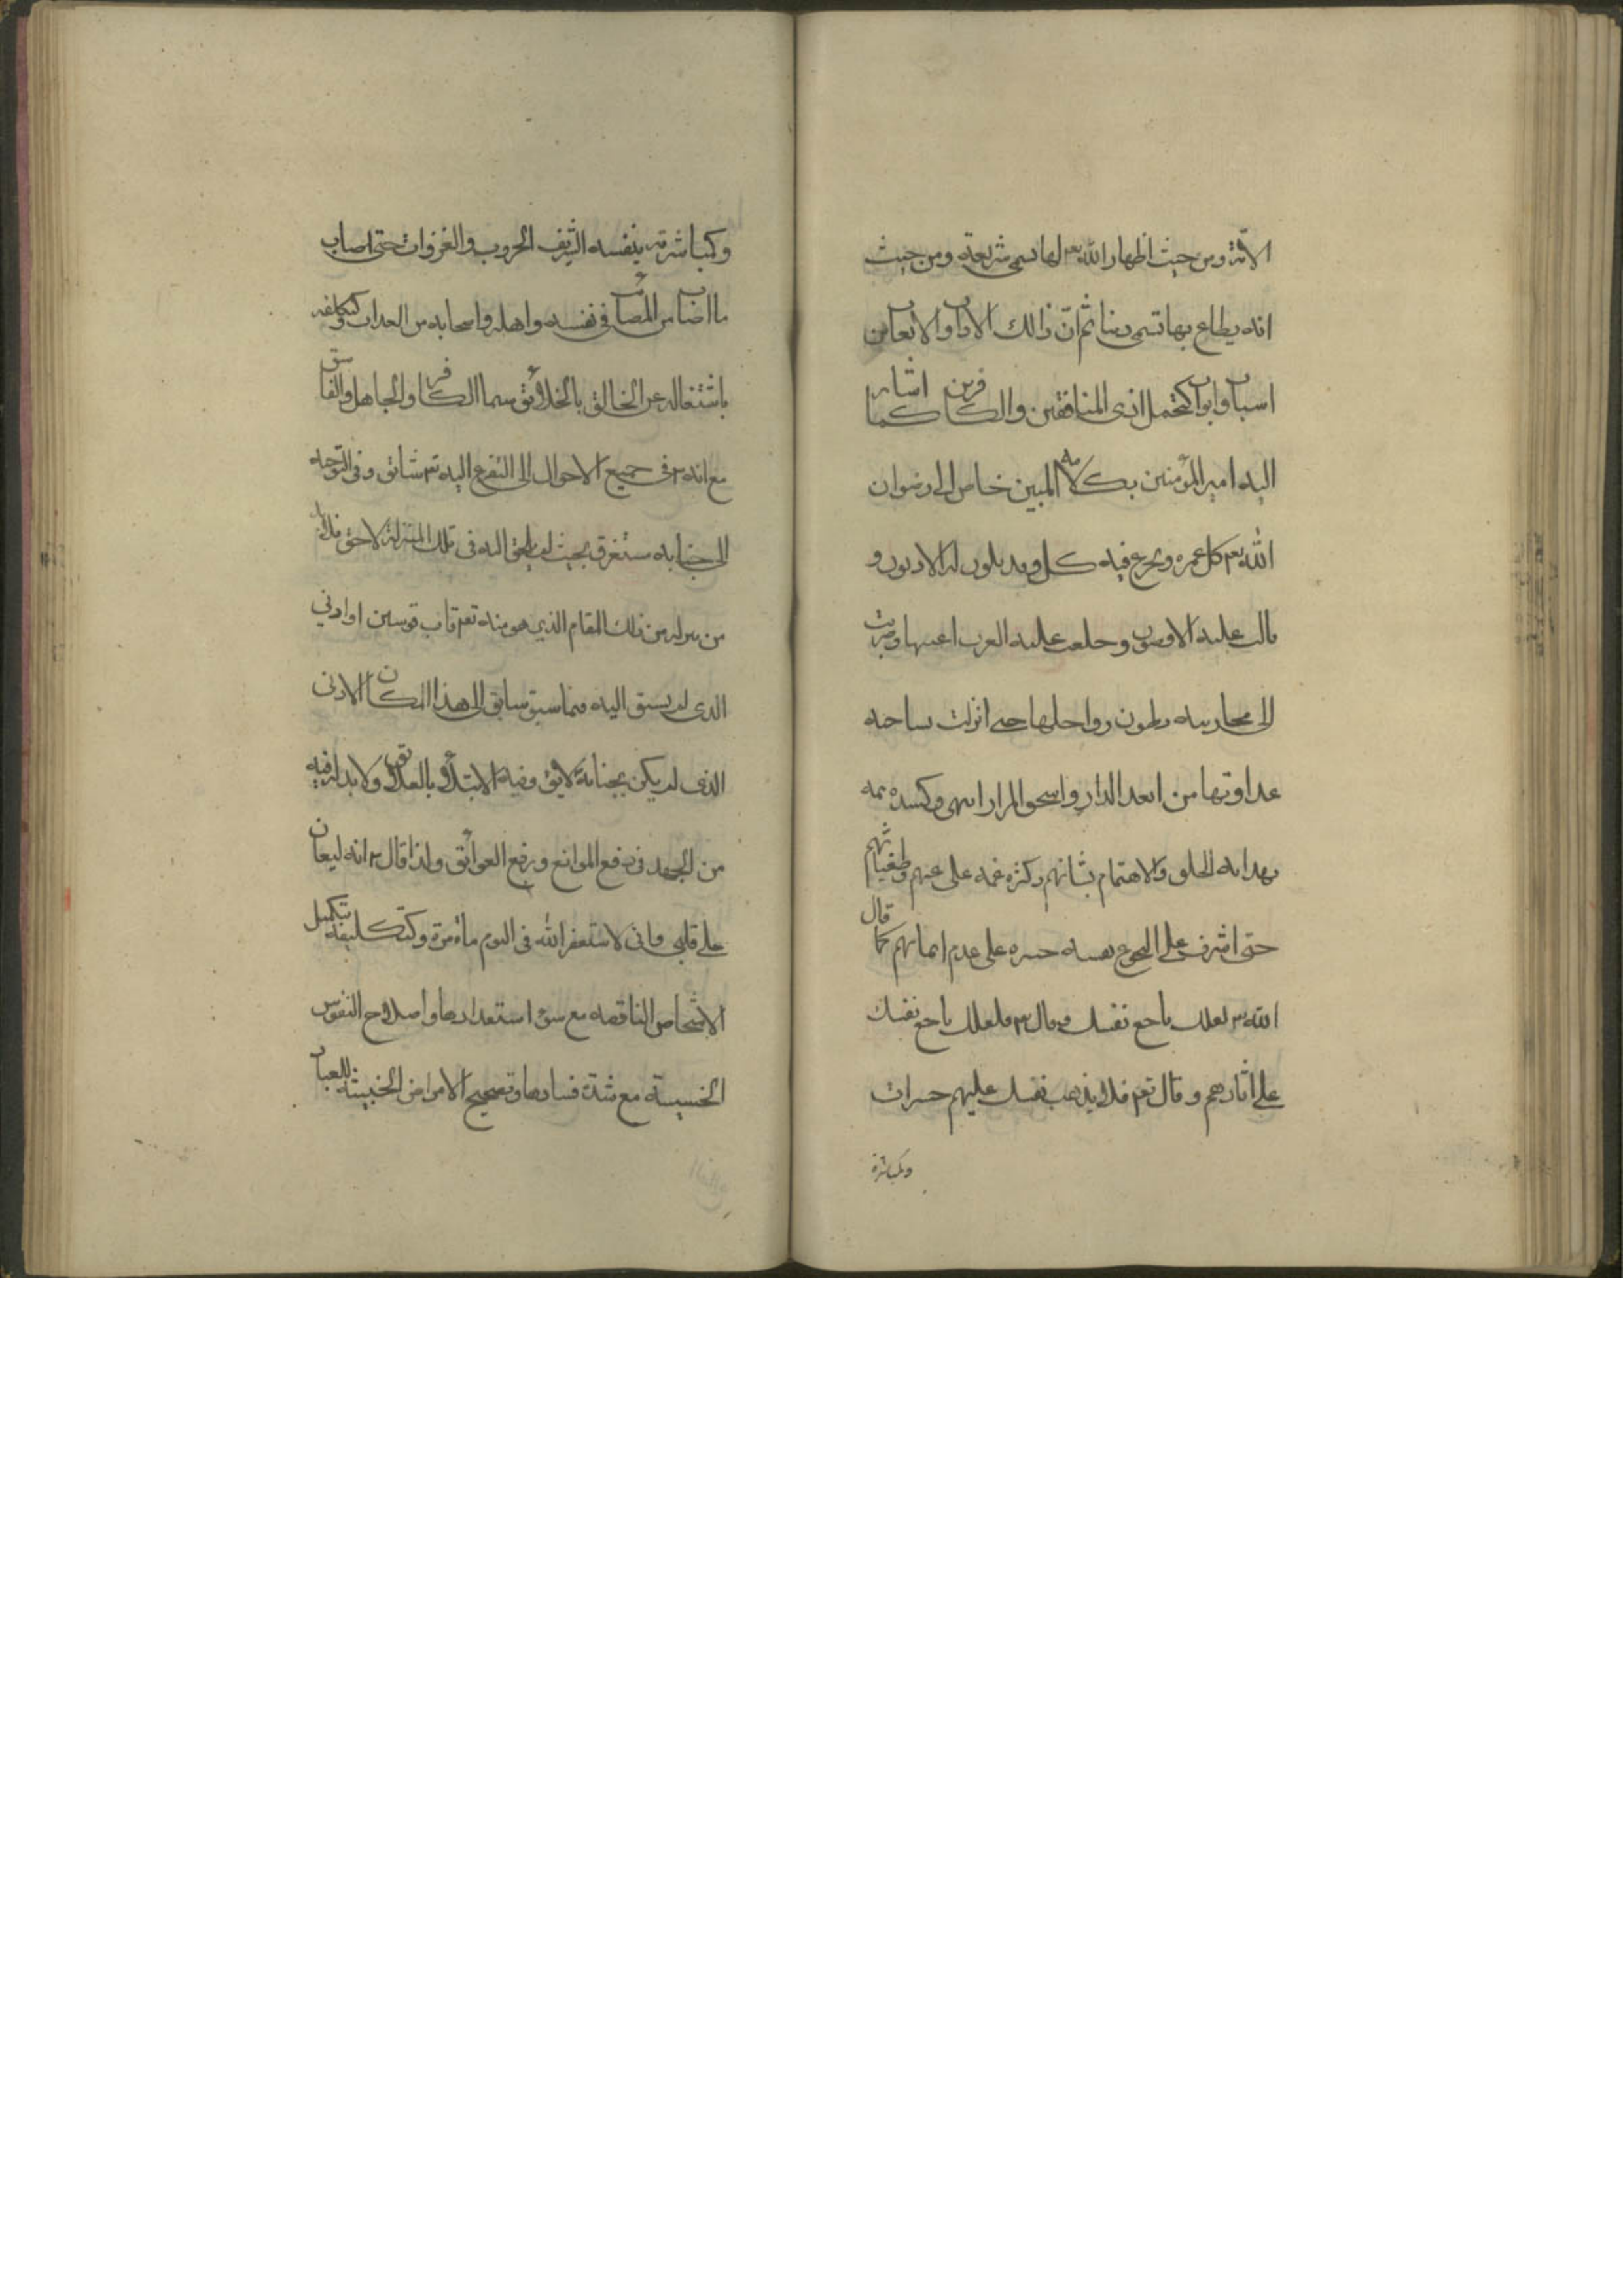 الامة ومن حيث اظهار الله تعم لها تسمى شريعة ومن حيث
انه يطاع بها تسمى دينا ثم ان ذالك الاداب والاتعاب من
اسباب وابواب كتحمل اذى المنافقين والكافرين كما اشار
اليه امير المؤمنين بكلامه المبين خاض الى رضوان
الله تعم كل غمرة وتجرع فيه كل وقد تلون له الادنون و
تالب عليه الاقصون وخلعت عليه العرب اعنتها وضربت
الى محاربته بطون رواحلها حتى انزلت بساحته
عداوتها من ابعد الدار واسحق المزار انتهى وكشدة همه
بهداية الخلق والاهتمام بشانهم وكثرة غمه على غيهم وطغيانهم
حتى اشرف على البخوع نفسه حسرة على عدم ايمانهم كما قال
الله تعم لعلك باخع نفسك وقال تعم فلعلك باخع نفسك
على اثارهم وقال تعم فلا يذهب نفسك عليهم حسرات
وكمباشرة
وكمباشرته بنفسه الشريف الحروب والغزوات حتى اصاب
ما اصاب من المصائب في نفسه واهله واصحابه من العداب وكتكلفه
باشتغاله عن الخالق بالخلائق سيما الكافر والجاهل والفاسق
مع انه في جميع الاحوال الى التضرع اليه تعم شائق وفي التوجه
الى جنابه مستغرق بحيث لم يلحق اليه في تلك المنزلة لاحق فلابد
من ذلك المقام الذي هو منه تعم قاب قوسين او ادنى
الذي لم يسبق اليه فيما سبق سابق الى هذا المكان الادنى
الذي لم يكن بجنابه لايق وفيه الابتلاؤ بالعلائق ولا بد له فيه
من الجهد في دفع الموانع ورفع العوائق ولذا قال انه ليعان
على قلبي واني لاستغفر الله في اليوم مأة مرة وكتكليفه تكميل
الاشخاص الناقصه مع سوء استعدادها واصلاح النفوس
الخسيسة مع شدة فسادها وتصحيح الامراض الخبيثة للعباد